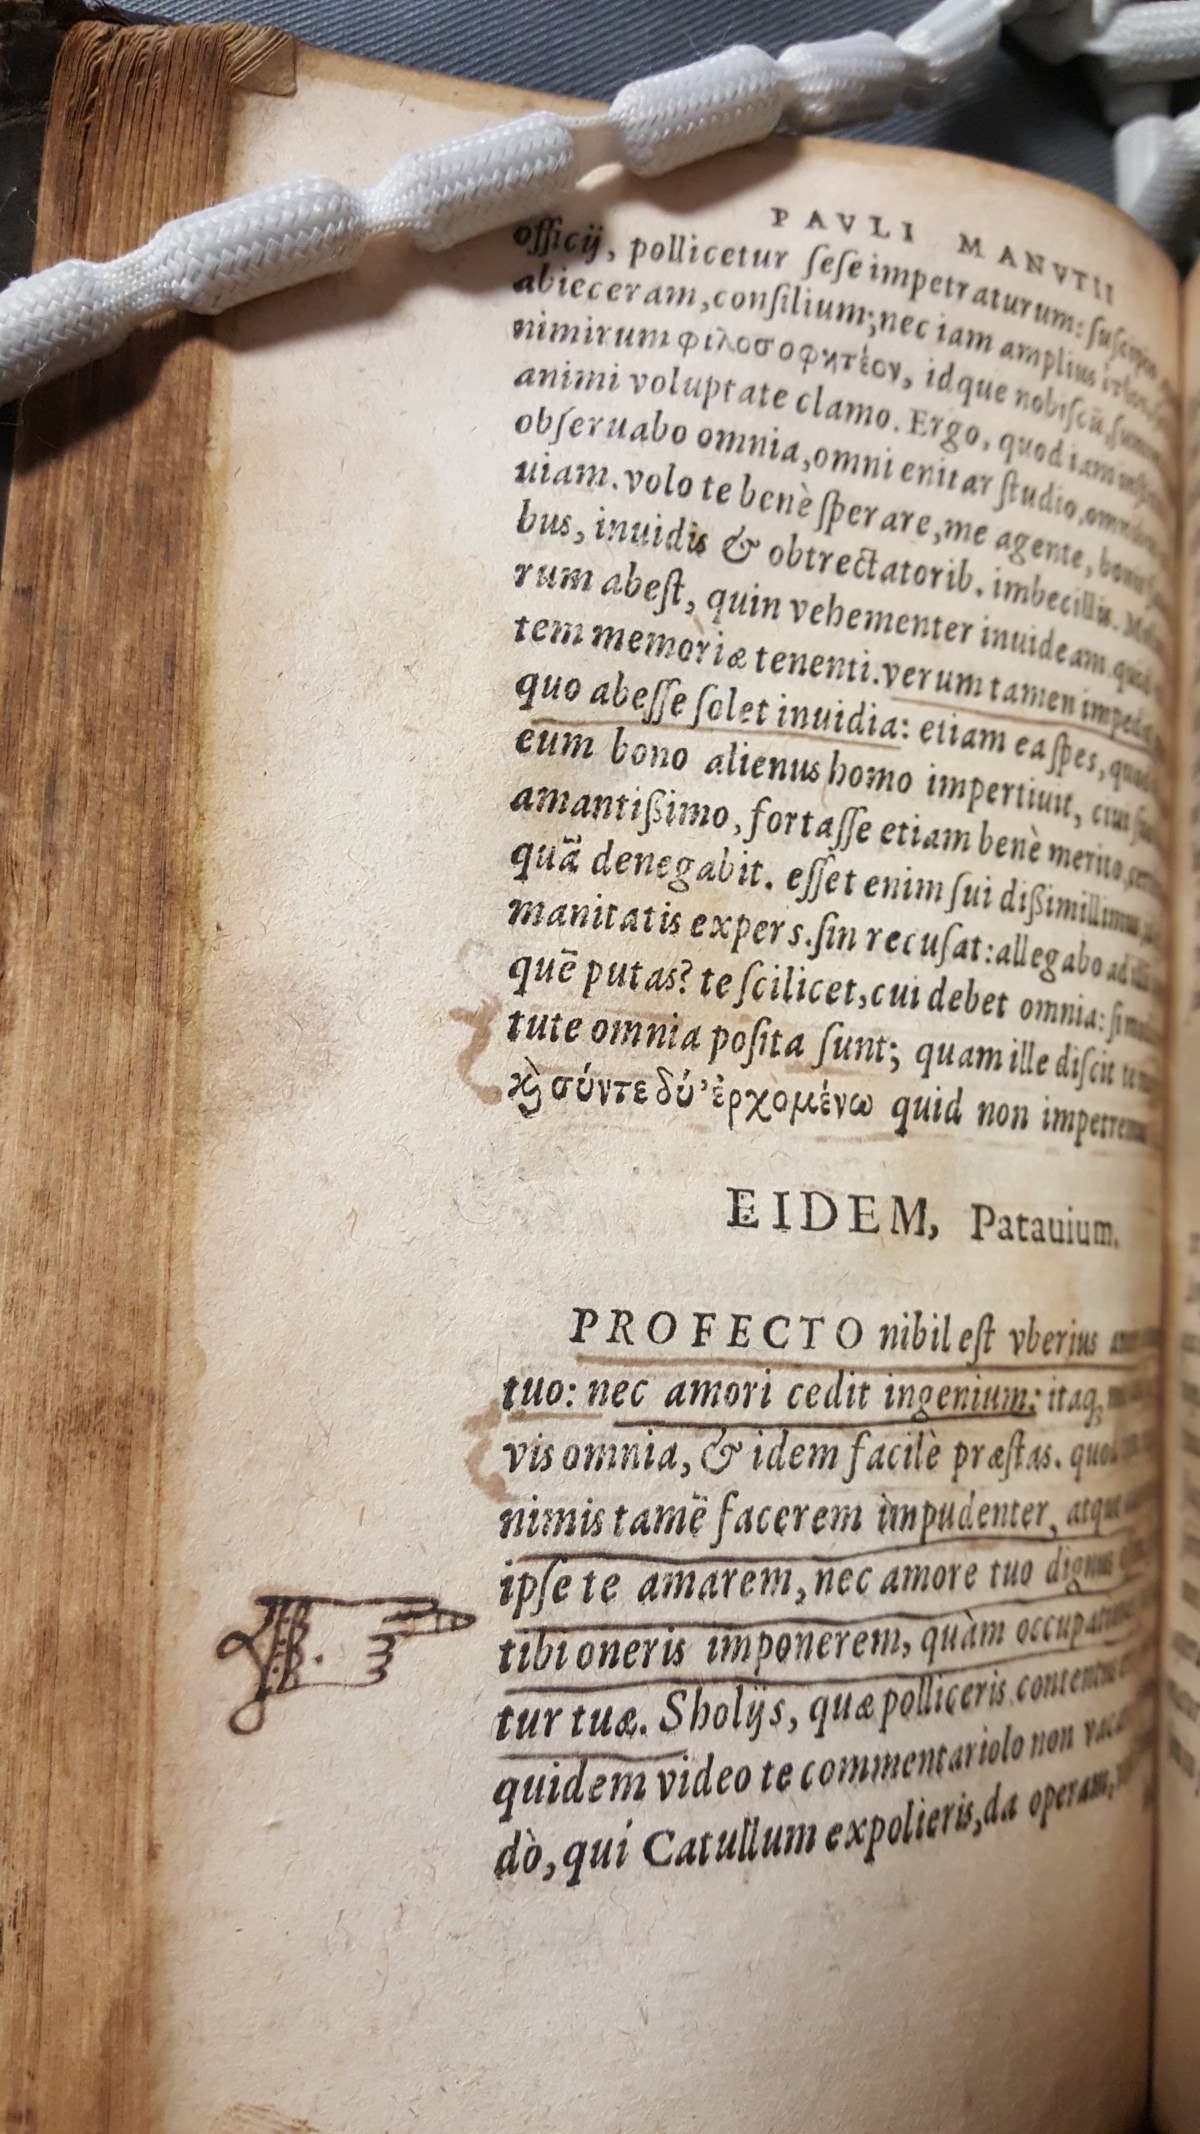 PAVLI MANVTII
officij, pollicetur ſeſe impetraturum: ſuſcepi
abieceram, conſilium; nec iam amplius
nimirum φιλοσοφητέον, idque nobiſcū, ſumma
animi voluptate clamo. Ergo, quod iam
obſeruabo omnia, omni enitar ſtudio, omnibus
uiam. volo te benè ſperare, me agente, bonis
bus, inuidis & obtrectatorib. imbecillis.
rum abeſt, quin vehementer inuideam. quid
tem memoriæ tenenti. verum tamen
quo abeſſe ſolet inuidia: etiam ea ſpes,
eum bono alienus homo impertiuit, cui
amantißimo, fortaſſe etiam benè merito,
quā denegabit. eſſet enim ſui dißimillimus
manitatis expers. ſin recuſat: allegabo ad
quē putas? te ſcilicet, cui debet omnia:
tute omnia poſita ſunt; quam ille diſcit
ϗ̀ σύντε δύ' ἐρχομένω quid non impetremus
EIDEM, Patauium.
PROFECTO nihil eſt vberius
tuo: nec amori cedit ingenium: itaq;
vis omnia, & idem facilè præſtas.
nimis tamē facerem impudenter, atque
ipſe te amarem, nec amore tuo dignus
tibi oneris imponerem, quàm
tur tuæ. Sholijs, quæ polliceris contentus
quidem video te commentariolo non
dò, qui Catullum expolieris, da operam,